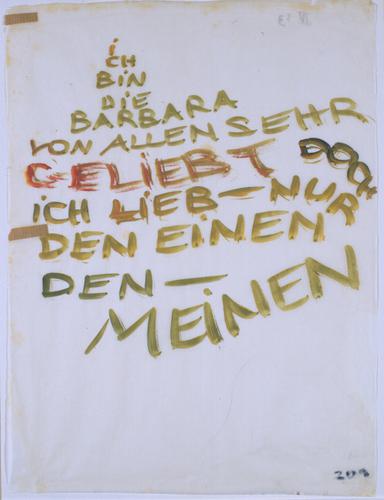 iCH
BIN
DIE
BARBARA
VON ALLEN SEHR
GELiEBT DOCH
iCH LIEB — NUR
DEN EINEN
DEN —
MEiNEN